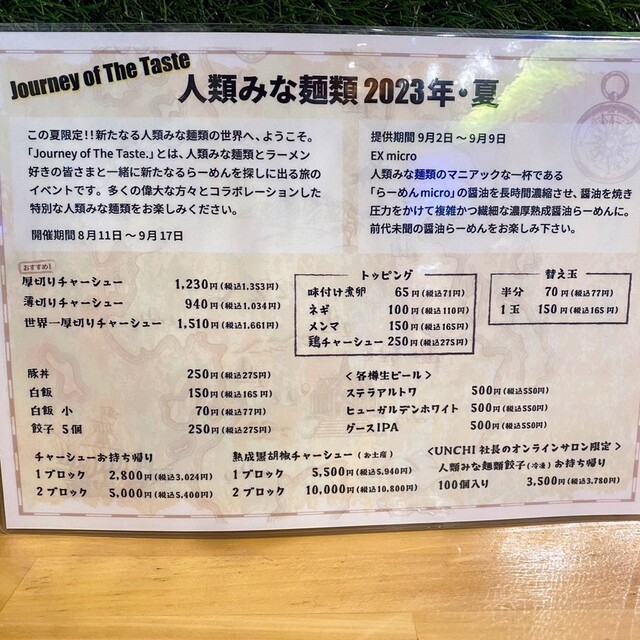 Journey of The Taste
人類みな麺類 2023年・夏
この夏限定!!新たなる人類みな麺類の世界へ、ようこそ。
「Journey of The Taste.」とは、人類みな麺類とラーメン
好きの皆さまと一緒に新たならーめんを探しに出る旅の
イベントです。多くの偉大な方々とコラボレーションした
特別な人類みな麺類をお楽しみください。
開催期間 8月11日〜9月17日
提供期間 9月2日〜9月9日
EX micro
人類みな麺類のマニアックな一杯である
「らーめんmicro」の醤油を長時間濃縮させ、醤油を焼き
圧力をかけて複雑かつ繊細な濃厚熟成醤油らーめんに。
前代未聞の醤油らーめんをお楽しみ下さい。
おすすめ!
厚切りチャーシュー 1,230円(税込1,353円)
薄切りチャーシュー 940円(税込1,034円)
世界一厚切りチャーシュー 1,510円(税込1,661円)
トッピング
味付け煮卵 65円(税込71円)
ネギ 100円(税込110円)
メンマ 150円(税込165円)
鶏チャーシュー 250円(税込275円)
替え玉
半分 70円(税込77円)
1玉 150円(税込165円)
豚丼 250円(税込275円)
白飯 150円(税込165円)
白飯 小 70円(税込77円)
餃子 5個 250円(税込275円)
<各樽生ビール>
ステラアルトワ 500円(税込550円)
ヒューガルデンホワイト 500円(税込550円)
グースIPA 500円(税込550円)
チャーシューお持ち帰り
1ブロック 2,800円(税込3,024円)
2ブロック 5,000円(税込5,400円)
熟成黒胡椒チャーシュー(お土産)
1ブロック 5,500円(税込5,940円)
2ブロック 10,000円(税込10,800円)
<UNCHI 社長のオンラインサロン限定>
人類みな麺類餃子(冷凍)お持ち帰り
100個入り 3,500円(税込3,780円)